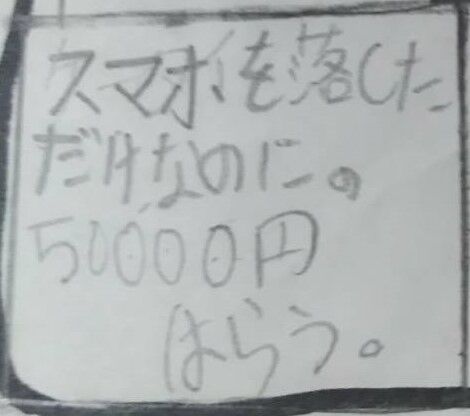 スマホを落した
だけなのに。
50000円
はらう。